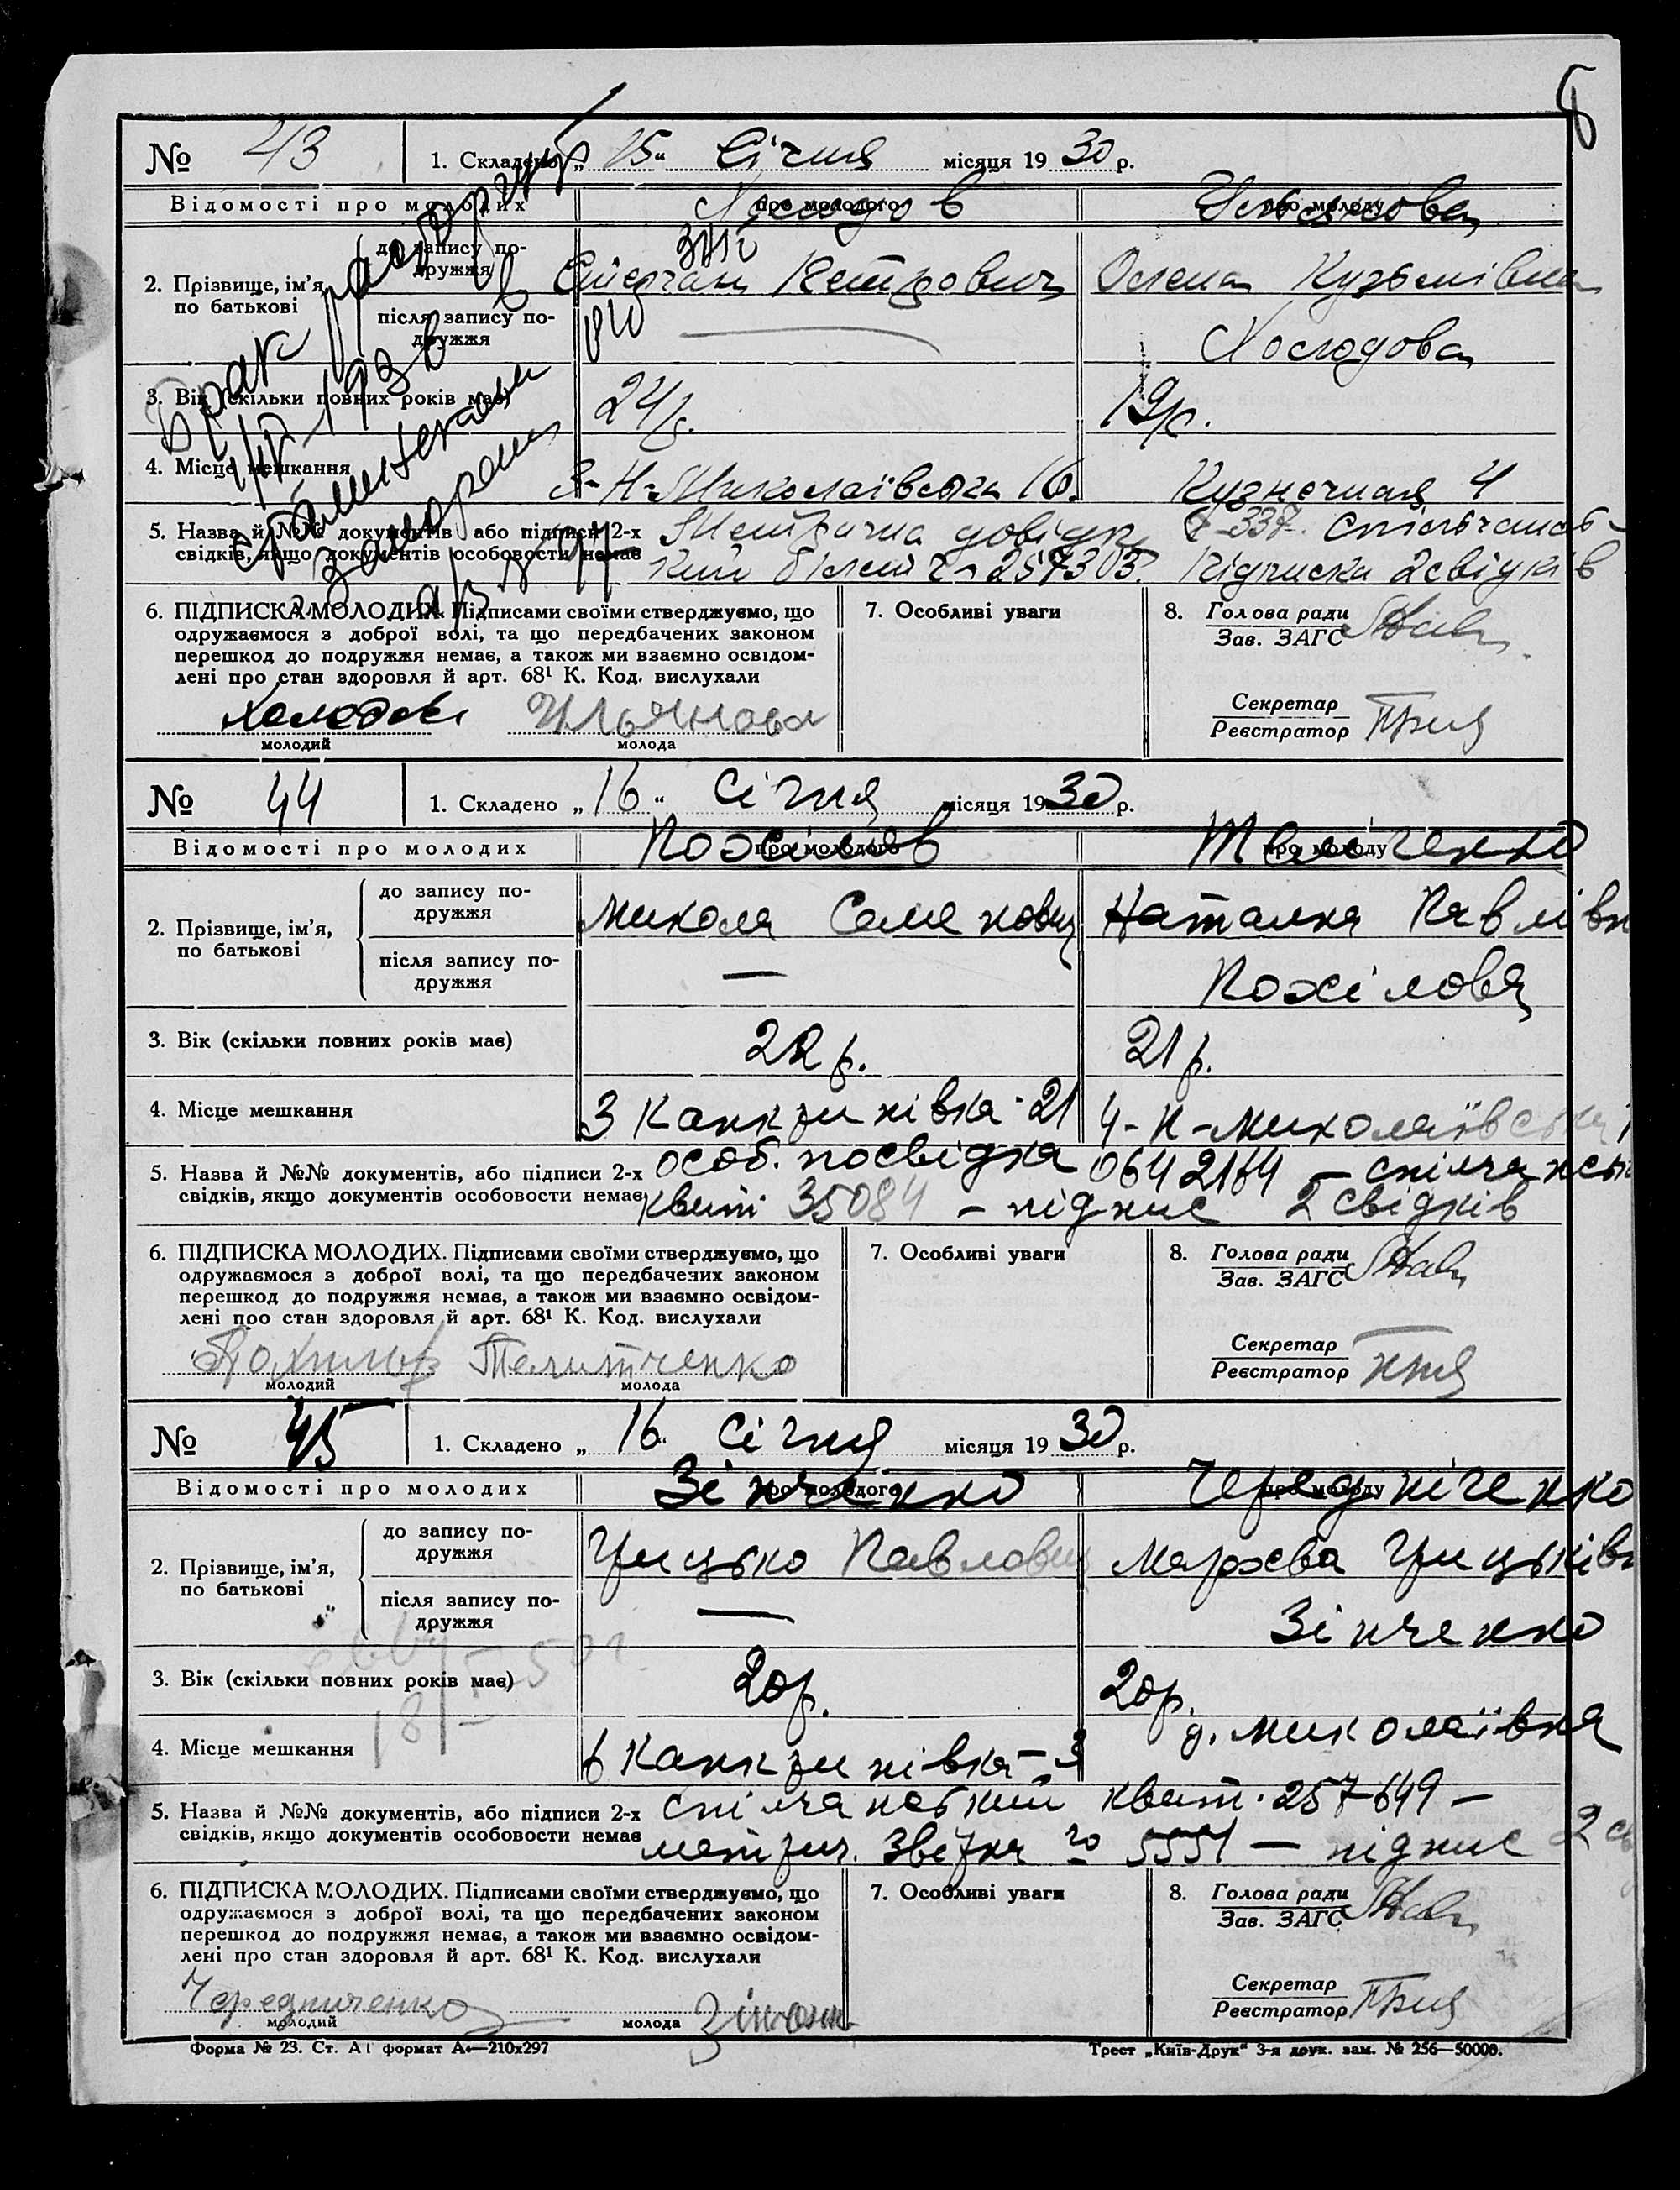 8
№ 43 1. Складено „ 15 “ Січня місяця 19 30 р.
Відомості про молодих про молодого Холодов про молоду Ульянова
2. Прізвище, ім’я, по батькові
до запису подружжя Степан Петрович Олена Кузьмівна
після запису подружжя — Холодова
3. Вік (скільки повних років має) 24 р. 19 р.
4. Місце мешкання 3-Н-Миколаївська 16. Кузнечная 4
5. Назва й №№ документів або підписи 2-х Метрична довідк. 337. спілчансь-
свідків, якщо документів особовости немає кий білет 257303. Підписка 2 свідків
Брак расторгнут
в
Запорож
6. ПІДПИСКА МОЛОДИХ. Підписами своїми стверджуємо, що
одружаємося з доброї волі, та що передбачених законом
перешкод до подружжя немає, а також ми взаємно освідом-
лені про стан здоровля й арт. 68¹ К. Код. вислухали
Холодов Ульянова
молодий молода
7. Особливі уваги
8. Голова ради
Зав. ЗАГС
Секретар
Реєстратор
№ 44 1. Складено „ 16 “ Січня місяця 19 30 р.
Відомості про молодих про молодого Похілов про молоду
2. Прізвище, ім’я, по батькові
до запису подружжя Микола Семенович Наталка Павлівн
після запису подружжя — Похілова
3. Вік (скільки повних років має) 22 р. 21 р.
4. Місце мешкання 3 Канкринівка 21 4-Н-Миколаївська
5. Назва й №№ документів, або підписи 2-х особ. посвідка 0642164 – спілчанськ
свідків, якщо документів особовости немає квит. 35084 – підпис 2 свідків
6. ПІДПИСКА МОЛОДИХ. Підписами своїми стверджуємо, що
одружаємося з доброї волі, та що передбачених законом
перешкод до подружжя немає, а також ми взаємно освідом-
лені про стан здоровля й арт. 68¹ К. Код. вислухали
Похилов Телитченко
молодий молода
7. Особливі уваги
8. Голова ради
Зав. ЗАГС
Секретар
Реєстратор
№ 45 1. Складено „ 16 “ Січня місяця 19 30 р.
Відомості про молодих про молодого Зінченко про молоду Чередніченко
2. Прізвище, ім’я, по батькові
до запису подружжя Грицько Павлович Мархва Грицьківн
після запису подружжя — Зінченко
3. Вік (скільки повних років має) 20 р. 20 р.
4. Місце мешкання 6 Канкринівка – 3 д. Миколаївка
5. Назва й №№ документів, або підписи 2-х спілчанський квит. 257649 –
свідків, якщо документів особовости немає метрич. 5551 – підпис 2 св
6. ПІДПИСКА МОЛОДИХ. Підписами своїми стверджуємо, що
одружаємося з доброї волі, та що передбачених законом
перешкод до подружжя немає, а також ми взаємно освідом-
лені про стан здоровля й арт. 68¹ К. Код. вислухали
Чередниченко Зінченк
молодий молода
7. Особливі уваги
8. Голова ради
Зав. ЗАГС
Секретар
Реєстратор
Форма № 23. Ст. А1 формат А4—210х297 Трест „Київ-Друк“ 3-я друк. зам. № 256—50000.